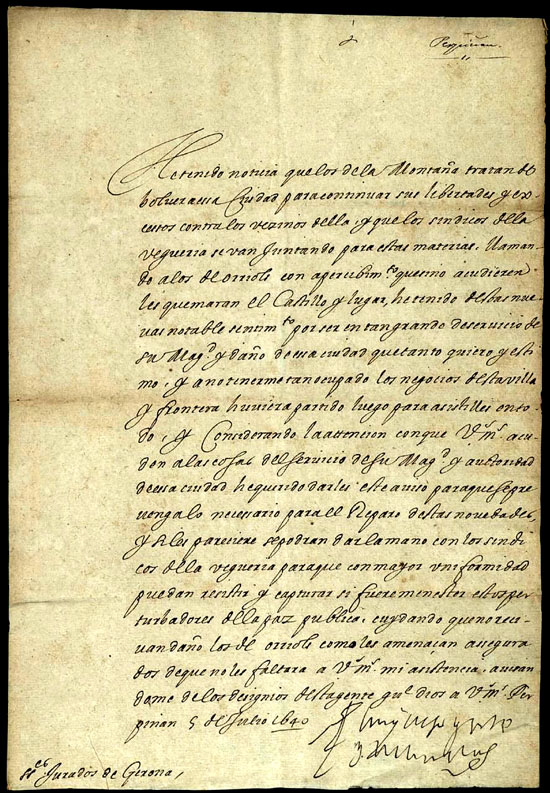 Perpiñan.
He tenido noticia que los de la Montaña tratan de
bolver a essa Ciudad para continuar sus libertades y ex-
cessos contra los vezinos della, y que los sindicos della
vegueria se van Juntando para estas materias. Llaman-
do a los de orriols con apercibimto que si no acudieren
les quemaran el Castillo y lugar, he tenido destas nue-
vas notable sentimto por ser en tan grande deservicio de
su Magd y daño de essa ciudad que tanto quiero y esti-
mo, y a no tinerme tan ocupado los negocios desta villa
y frontera huviera partido luego para asistilles en to-
do, y Considerando la attencion con que V.ms acu-
den a las cosas del servicio de su Magd y autoridad
de essa ciudad he querido darles este aviso para que se pre-
venga lo necessario para el Reparo destas novedades,
y si los pareciere se podran dar la mano con los sindi-
cos della vegueria para que con mayor uniformidad
puedan resistir y capturar si fuere menester estos per-
turbadores della paz publica, cuydando que no reci-
van daño los de orriols como les amenaçan assegura-
dos de que no les faltara a V.ms mi asistencia, avisan-
dome de los designios desta gente gue dios a V.ms Per-
piñan 5 de Julio 1640
Sres Jurados de Gerona,